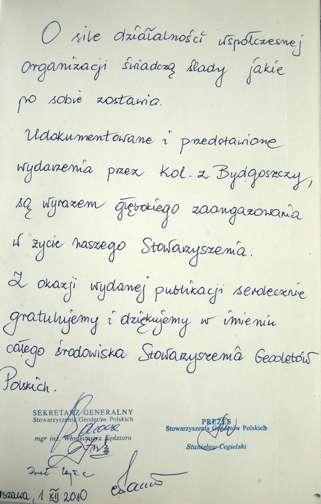 O sile działalności współczesnej
organizacji świadczą ślady jakie
po sobie zostawia.
Udokumentowane i przedstawione
wydarzenia przez Kol. z Bydgoszczy,
są wyrazem głębokiego zaangażowania
w życie naszego Stowarzyszenia.
Z okazji wydanej publikacji serdecznie
gratulujemy i dziękujemy w imieniu
całego środowiska Stowarzyszenia Geodetów
Polskich.
SEKRETARZ GENERALNY
Stowarzyszenia Geodetów Polskich
mgr inż. Włodzimierz Kędziora
PREZES
Stowarzyszenia Geodetów Polskich
Stanisław Cegielski
rszawa, 1 XII 2010